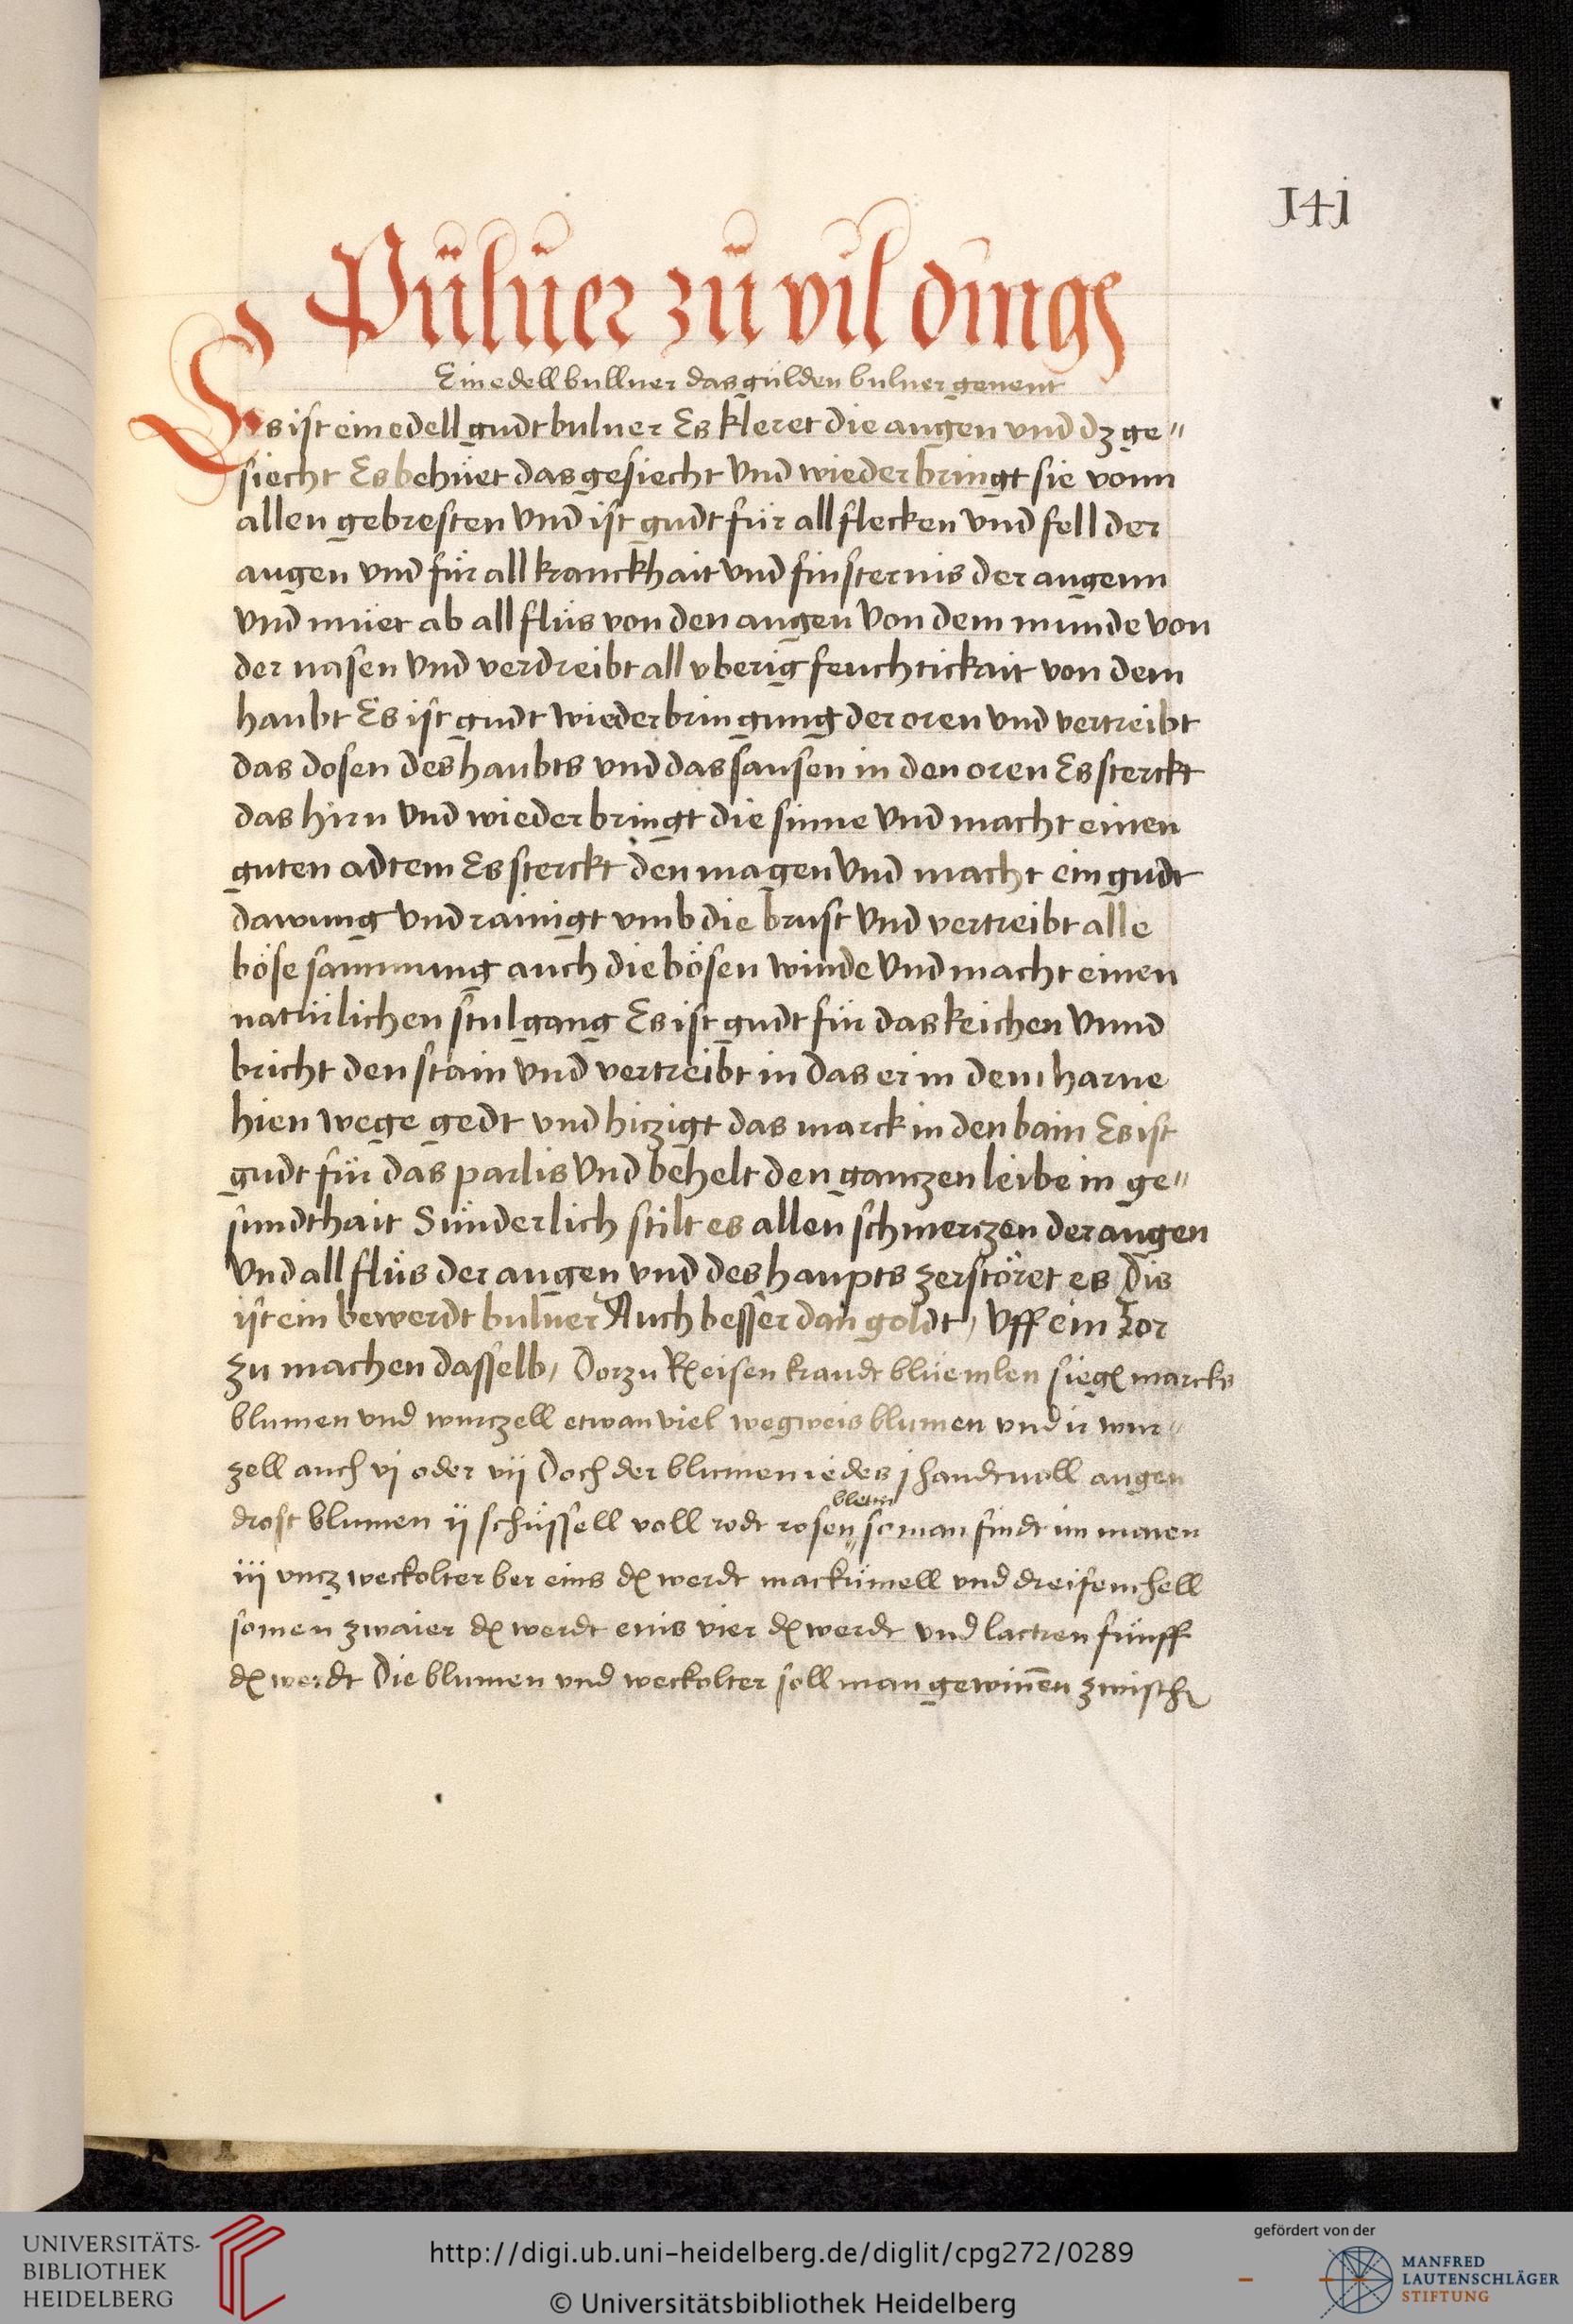 141
Püluer zu vil dings
Ein edell bulluer das gülden buluer genent
Es ist ein edell gudt buluer Es kleret die augen vnd dz ge"
siecht Es behüet das gesiecht Vnd wiederbringt sie vonn
allen gebresten Vnd ist gudt für all flecken vnd fell der
augen vnd für all kranckhait vnd finsternis der augenn
vnd nüiet ab all flüs von den augen Von dem munde von
der nasen Vnd verdreibt all vberig feuchtickait von dem
haubt Es ist gudt wiederbringung der oren vnd vertreibt
das dosen des haubts vnd das sausen in den oren Es sterckt
das hirn Vnd wiederbringt die sinne Vnd macht einen
guten adtem Es sterckt den magen Vnd macht ein gudt
dawung Vnd rainigt vmb die brust Vnd vertreibt alle
böse sammung auch die bösen winde Vnd macht einen
natürlichen stulgang Es ist gudt für das keichen Vnnd
bricht den stain Vnd vertreibt in das er in dem harne
hien wege gedt vnd hiczigt das marck in den bain Es ist
gudt für das parlis Vnd behelt den ganczen leibe in ge"
sundthait Sünderlich stilt es allen schmerczen der augen
Vnd all flüs der augen vnd des haupts zerstöret es Dis
ist ein bewerdt buluer Auch besser dan goldt / Vff ein Jor
zu machen dasselb / Dorzu Rx eisen kraudt blüemlen sieg marcks
blumen vnd wurczell etwan viel wegweis blumen vnd ir wur"
zell auch vj oder vij Doch der blumen iedes j handtuoll augen
drost blumen ij schüssell voll rodt rosen" so man findt im maien
bletter
iij vncz weckolter ber eins d werdt mackümell vnd dreisemhell
somen zwaier d werdt enis vier d werdt vnd lactren fünff
d werdt Die blumen vnd weckolter soll man gewinnen zwisch
UNIVERSITÄTS-
BIBLIOTHEK
HEIDELBERG
http://digi.ub.uni-heidelberg.de/diglit/cpg272/0289
© Universitätsbibliothek Heidelberg
gefördert von der
MANFRED
LAUTENSCHLÄGER
STIFTUNG